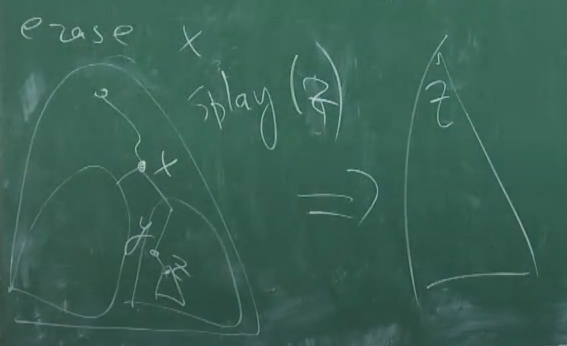 erase x
splay (z)
x
y
z
⇒
z